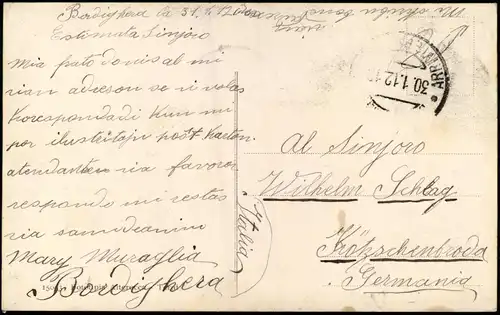 Bordighera la 31. 1. 12
Estimata Sinjoro
Mia pato donis al mi
vian adreson se vi volas
Korespondadi kun mi
per ilustritajn post Karton.
atendante via favoron
respondo mi restas
via samideanini
Mary Muraglia
Bordighera
Italia
ARRIVI E
30.1.12.1
Al Sinjoro
Wilhelm Schlag
Kötzschenbroda
Germania